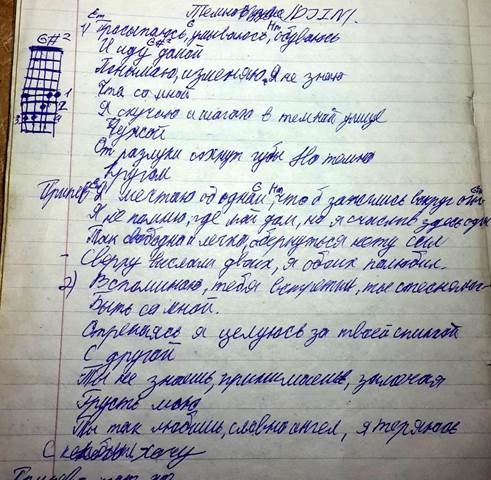 Em Темно /DJIM.
G#2 1) Просыпаюсь, умываюсь, обуваюсь
E Hm
И иду домой
G#2
Понимаю, изменяю, я не знаю
Что со мной
Я скучаю и шагаю в темной улице
Чужой
От разлуки сохнут губы Но темно
Кругом
Припев: Я мечтаю об одном, что б зажглись вокруг огни
Em E Hm Em
Я не помню, где мой дом, но я счастлив здесь один
Так свободно и легко, обернуться нету сил
- Сверху числам двоих, я обоих полюбил.
2) Вспоминаю, тебя встретил, ты стеснялась
Быть со мной.
я целуюсь за твоей спиной
С другой
Ты не знаешь, принимаешь, заглочая
Грусть мою
Ты так любишь, словно ангел, я теряюсь
С хочу
1
2
3 4